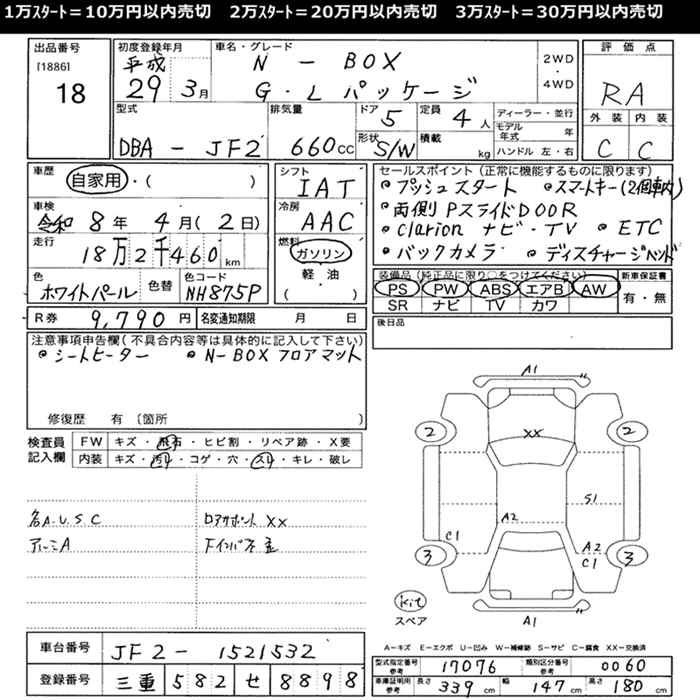 1万スタート=10万円以内売切 2万スタート=20万円以内売切 3万スタート=30万円以内売切
出品番号
[1886]
18
初度登録年月
平成
29 3月
車名・グレード
N-BOX
G・Lパッケージ
2WD
・
4WD
型式
DBA-JF2
排気量
660cc
ドア
5
定員
4人
形状
S/W
積載
kg
ディーラー・並行
モデル年式 年
ハンドル 左・右
評価点
RA
外装 内装
C C
車歴
自家用・( )
車検
令和8年4月(2日)
走行
18万2千460km
色
ホワイトパール
色替
色コード
NH875P
シフト
IAT
冷房
AAC
燃料
ガソリン
軽・油
( )
セールスポイント(正常に機能するものに限ります)
・プッシュスタート ・スマートキー(2個車内)
・両側PスライドDOOR
・clarionナビ・TV ・ETC
・バックカメラ ・ディスチャージヘッド
装備品(純正品に限り○をつけてください)
PS PW ABS エアB AW
SR ナビ TV カワ
新車保証書
有・無
R券 9,790円
名変通知期限 月 日
後日品
注意事項申告欄(不具合内容等は具体的に記入して下さい)
・シートヒーター ・N-BOXフロアマット
修復歴 有 〔箇所 〕
検査員
記入欄
FW キズ・飛石・ヒビ割・リペア跡・X要
内装 キズ・汚れ・コゲ・穴・スレ・キレ・破レ
名A.U.S.C
アルミA
ロアサポートXX
A1
2
2
XX
A2
S1
C1
A2
C1
3
3
A1
kit
スペア
A-キズ E-エクボ U-凹み W-補修跡 S-サビ C-腐食 XX-交換済
車台番号
JF2-1521532
登録番号
三重 582 せ 8898
型式指定番号
参考
17076
類別区分番号
参考
0060
車庫証明用
参考
長さ 339cm 幅 147cm 高さ 180cm